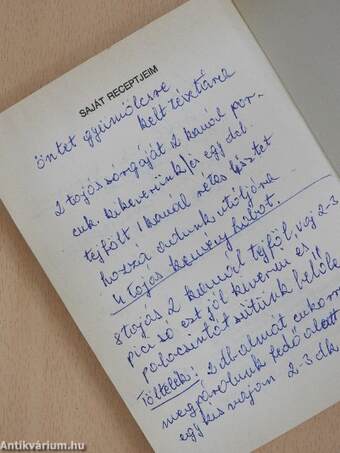 SAJÁT RECEPTJEIM
öntet gyümölcsre
kelt tésztára
2 tojás sárgáját 2 kanál por-
cuk. kikeverünk/és egy dob.
tejfölt 1 kanál rétes lisztet
hozzá adunk utóljára
4 tojás kemény habot.
8 tojás, 2 kanál tejföl, vaj 2-3
pici só ezt jól kiverni és
palacsintát sütünk belőle
Töltelék: 2 db almát cukorra
megpárolunk fedő alatt
egy kis vajon 2-3 dk
Antikvárium.hu